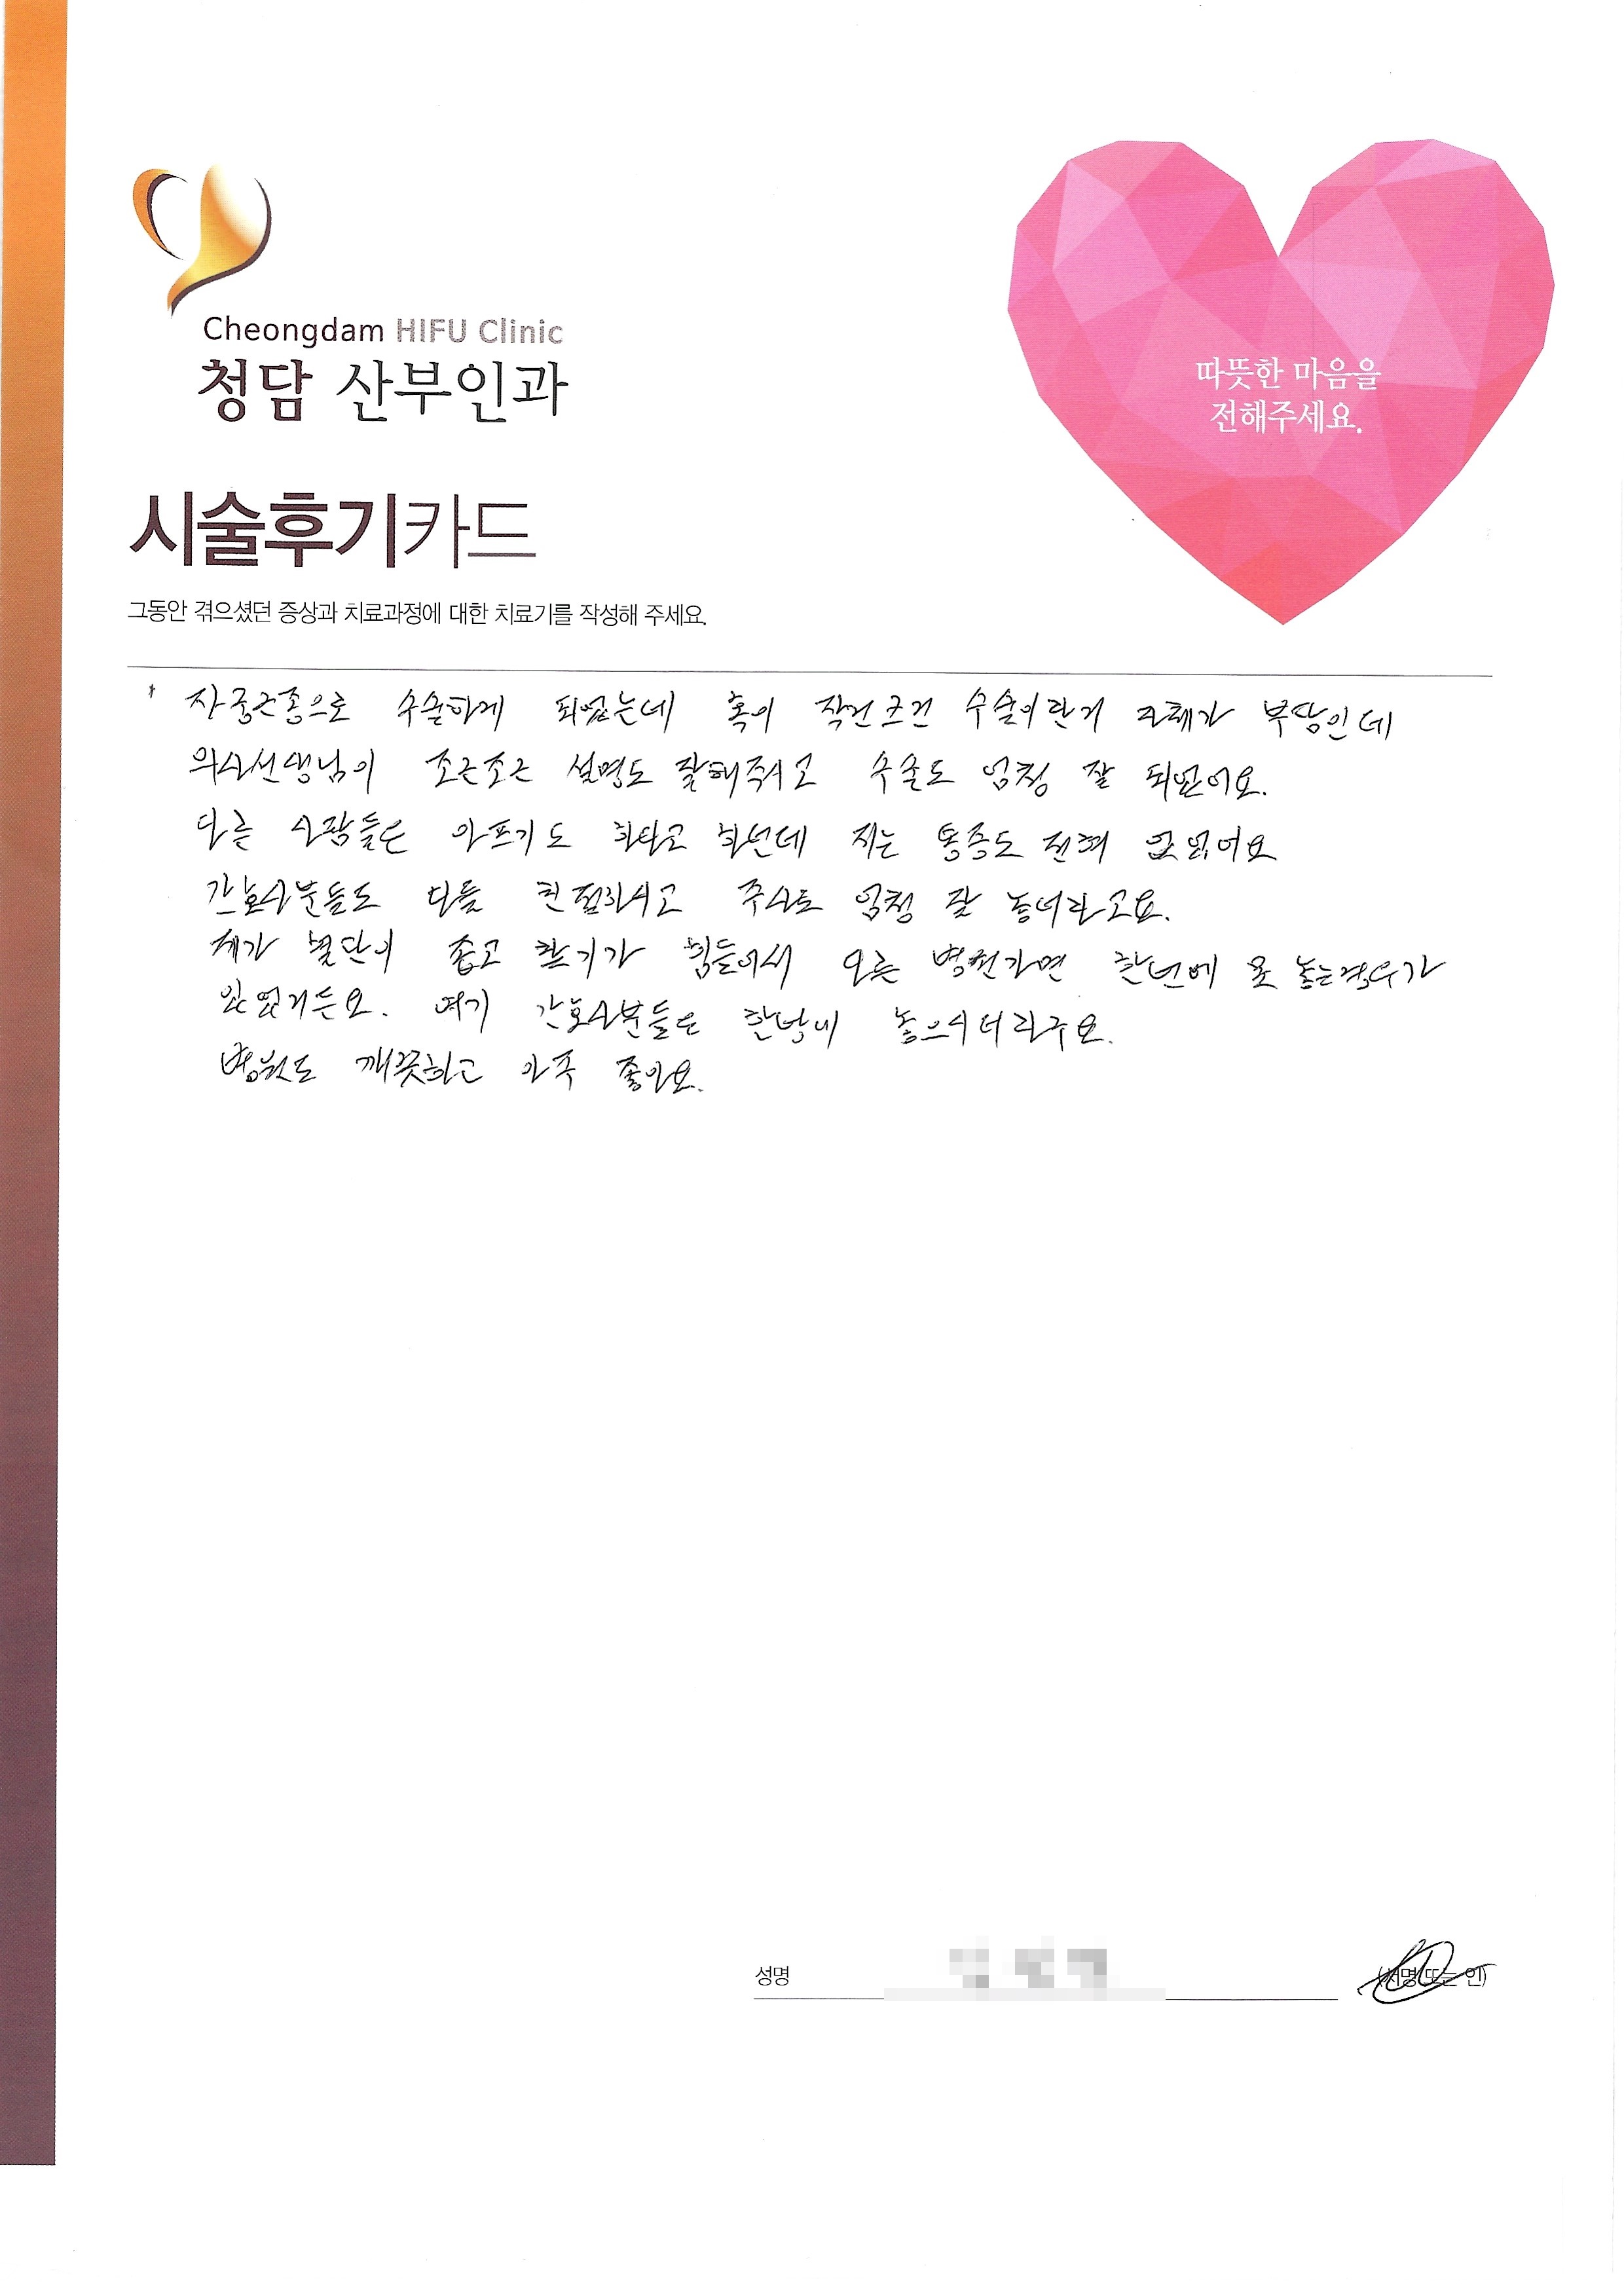 Cheongdam HIFU Clinic
청담 산부인과
따뜻한 마음을
전해주세요.
시술후기카드
그동안 겪으셨던 증상과 치료과정에 대한 치료기를 작성해 주세요.
자궁근종으로 수술하게 되었는데 혹이 작건크건 수술이란게 자체가 부담인데
의사선생님이 조근조근 설명도 잘해주시고 수술도 엄청 잘 되었어요.
다른 사람들은 아프기도 하다고 하던데 저는 통증도 전혀 없었어요
간호사분들도 다들 친절하시고 주사도 엄청 잘 놓더라고요.
제가 혈관이 좁고 찾기가 힘들어서 오른 병원가면 한번에 못 놓는경우가
있었거든요. 여기 간호사분들은 한방에 놓으시더라구요.
병원도 깨끗하고 아주 좋아요.
성명
(서명 또는 인)